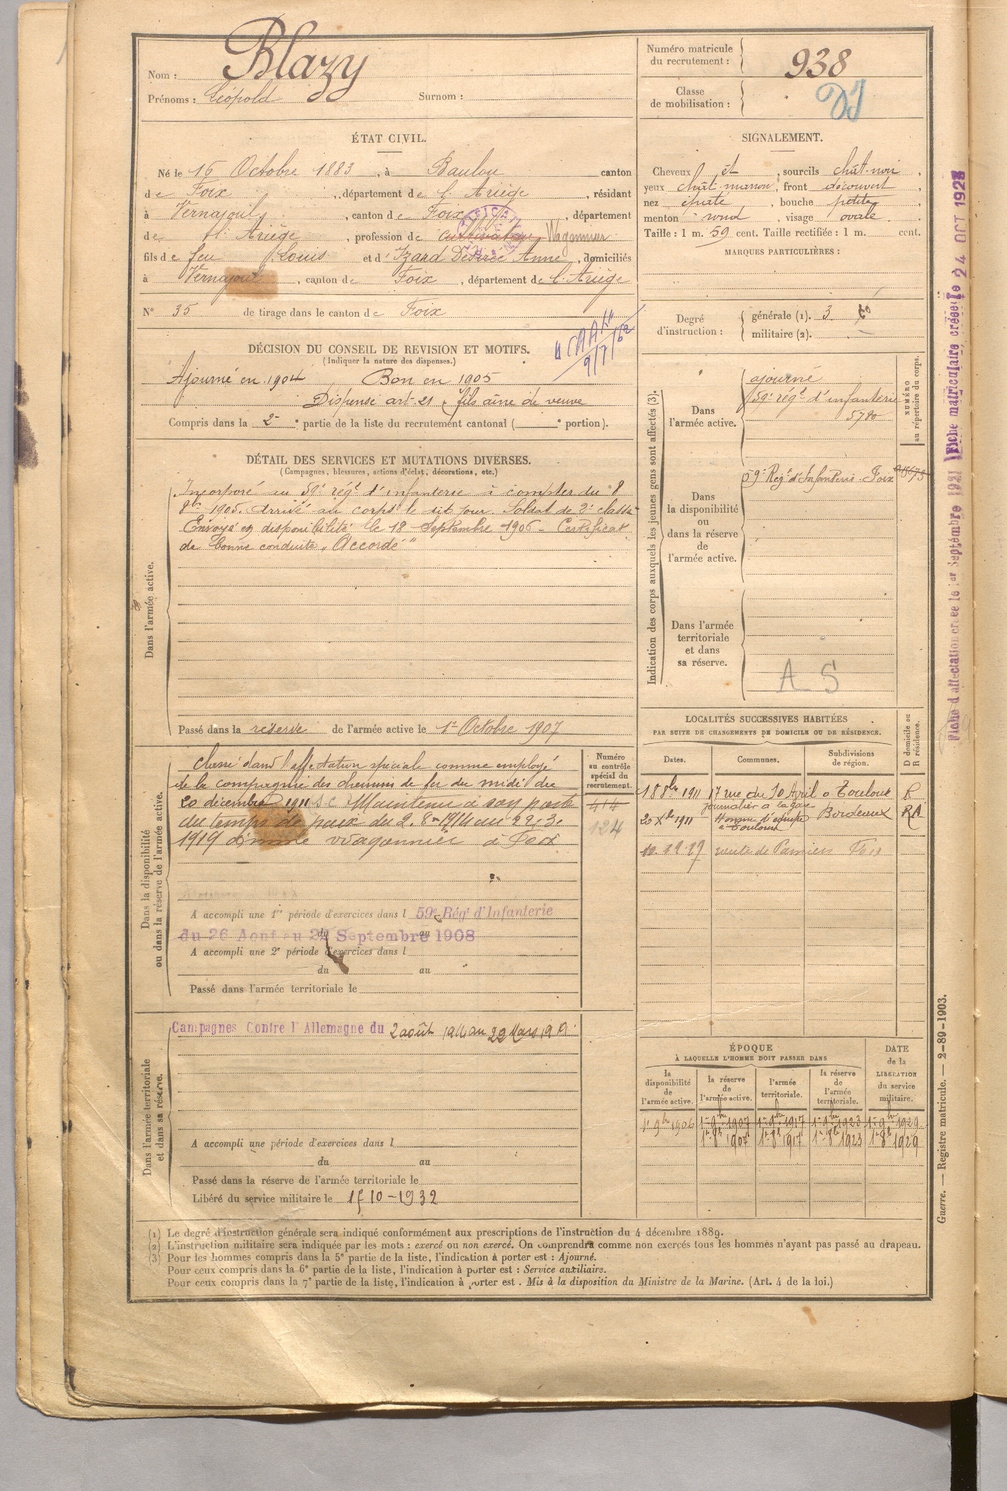 Nom : Blazy
Prénoms : Léopold Surnom :
Numéro matricule du recrutement : 938
Classe de mobilisation :
ÉTAT CIVIL.
Né le 16 Octobre 1883, à Baulou canton
de Foix, département de l'Ariège, résidant
à Vernajoul, canton de Foix, département
de l'Ariège, profession de cultivateur, Wagonnier
fils de feu Louis et d'Izard Désirée Anne, domiciliés
à Vernajoul, canton de Foix, département de l'Ariège
N° 35 de tirage dans le canton de Foix
SIGNALEMENT.
Cheveux et, sourcils chât-noir
yeux chât-marron, front découvert
nez, bouche petite
menton rond, visage ovale
Taille : 1 m. 59 cent. Taille rectifiée : 1 m. cent.
MARQUES PARTICULIÈRES :
Degré d'instruction :
générale (1). 3
militaire (2).
DÉCISION DU CONSEIL DE REVISION ET MOTIFS.
(Indiquer la nature des dispenses.)
Ajourné en 1904 Bon en 1905
Dispensé art-21. fils aîné de veuve
Compris dans la 2e partie de la liste du recrutement cantonal ( e portion).
DÉTAIL DES SERVICES ET MUTATIONS DIVERSES.
(Campagnes, blessures, actions d'éclat, décorations, etc.)
Dans l'armée active.
Incorporé au 59e régt d'infanterie à compter du 8
8bre 1905. Arrivé au corps le dit jour. Soldat de 2e classe
Envoyé en disponibilité le 18 Septembre 1906 - Certificat
de bonne conduite "Accordé"
Passé dans la réserve de l'armée active le 1er Octobre 1907
Indication des corps auxquels les jeunes gens sont affectés (3).
NUMÉRO au répertoire du corps.
Dans l'armée active.
ajourné
59e régt d'infanterie
5780
Dans la disponibilité ou dans la réserve de l'armée active.
59e Régt d'Infanterie - Foix
Dans l'armée territoriale et dans sa réserve.
A S
Dans la disponibilité ou dans la réserve de l'armée active.
Classé dans l'affectation spéciale comme employé
de la compagnie des chemins de fer du midi du
20 décembre 1911 Maintenu à son poste
du temps de paix du 2-8-1914 au 22-3-
1919 comme wagonnier à Foix
Numéro au contrôle spécial du recrutement.
414
124
A accompli une 1re période d'exercices dans l 59e Régt d'Infanterie
du 26 Aout au 22 Septembre 1908
A accompli une 2e période d'exercices dans l
du au
Passé dans l'armée territoriale le
LOCALITÉS SUCCESSIVES HABITÉES
PAR SUITE DE CHANGEMENTS DE DOMICILE OU DE RÉSIDENCE.
Dates. Communes. Subdivisions de région. D domicile ou R résidence.
18 8bre 1911 17 rue du 10 Avril à Toulouse R
20 Xbre 1911 journalier à la gare Homme d'équipe à Toulouse Bordeaux RD
route de Pamiers
Dans l'armée territoriale et dans sa réserve.
Campagnes Contre l'Allemagne du 2 août 1914 au 22 Mars 1919
A accompli une période d'exercices dans l
du au
Passé dans la réserve de l'armée territoriale le
Libéré du service militaire le 15-10-1932
ÉPOQUE
À LAQUELLE L'HOMME DOIT PASSER DANS
la disponibilité de l'armée active. la réserve de l'armée active. l'armée territoriale. la réserve de l'armée territoriale.
DATE de la LIBÉRATION du service militaire.
1er 9bre 1906 1er 9bre 1907 1er 9bre 1917 1er 9bre 1923 1er 9bre 1929
1er 8bre 1907 1er 8bre 1917 1er 8bre 1923 1er 8bre 1929
(1) Le degré d'instruction générale sera indiqué conformément aux prescriptions de l'instruction du 4 décembre 1889.
(2) L'instruction militaire sera indiquée par les mots : exercé ou non exercé. On comprendra comme non exercés tous les hommes n'ayant pas passé au drapeau.
(3) Pour les hommes compris dans la 5e partie de la liste, l'indication à porter est : Ajourné.
Pour ceux compris dans la 6e partie de la liste, l'indication à porter est : Service auxiliaire.
Pour ceux compris dans la 7e partie de la liste, l'indication à porter est : Mis à la disposition du Ministre de la Marine. (Art. 4 de la loi.)
Guerre. — Registre matricule. — 2-89-1903.
Fiche d'affectation créée le 1er Septembre 1921
Fiche matriculaire créée le 24 OCT 1928